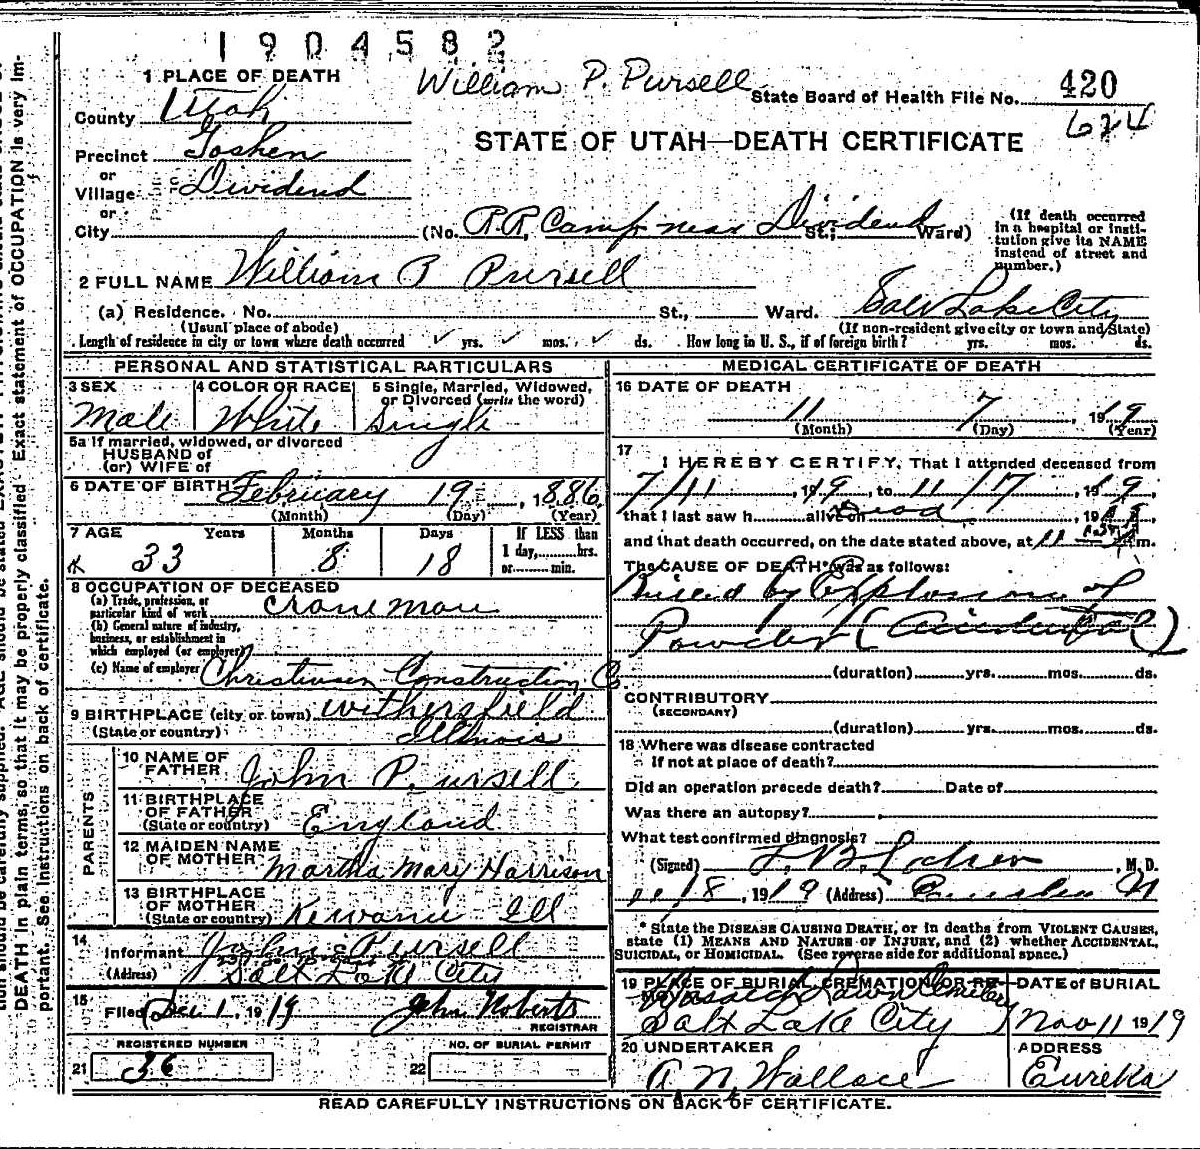 1904582
William P. Pursell
State Board of Health File No. 420
624
STATE OF UTAH—DEATH CERTIFICATE
1 PLACE OF DEATH
County Utah
Precinct Goshen
or
Village Dividend
or
City (No. R.R. Camp near Dividend St.; Ward)
(If death occurred in a hospital or insti-
tution give its NAME
instead of street and
number.)
2 FULL NAME William P Pursell
(a) Residence. No. St., Ward. Salt Lake City
(Usual place of abode) (If non-resident give city or town and State)
Length of residence in city or town where death occurred ✓ yrs. ✓ mos. ✓ ds. How long in U. S., if of foreign birth? yrs. mos. ds.
PERSONAL AND STATISTICAL PARTICULARS
3 SEX
Male
4 COLOR OR RACE
White
5 Single, Married, Widowed,
or Divorced (write the word)
Single
5a If married, widowed, or divorced
HUSBAND of
(or) WIFE of
6 DATE OF BIRTH February 19, 1886
(Month) (Day) (Year)
7 AGE Years Months Days If LESS than
33 8 18 1 day, hrs.
or min.
8 OCCUPATION OF DECEASED
(a) Trade, profession, or
particular kind of work Crane man
(b) General nature of industry,
business, or establishment in
which employed (or employer)
(c) Name of employer Christensen Construction Co.
9 BIRTHPLACE (city or town) Withersfield
(State or country) Illinois
PARENTS
10 NAME OF
FATHER John Pursell
11 BIRTHPLACE
OF FATHER
(State or country) England
12 MAIDEN NAME
OF MOTHER Martha Mary Harrison
13 BIRTHPLACE
OF MOTHER
(State or country) Kewanee Ill
14
Informant John Pursell
(Address) Salt Lake City
15
Filed Dec 1, 1919 John Roberts
REGISTRAR
REGISTERED NUMBER
21 36
NO. OF BURIAL PERMIT
22
MEDICAL CERTIFICATE OF DEATH
16 DATE OF DEATH
11 7, 1919
(Month) (Day) (Year)
17
I HEREBY CERTIFY, That I attended deceased from
7/11, 1919, to 11/17, 1919,
that I last saw h alive on Dead, 19
and that death occurred, on the date stated above, at 11 m.
The CAUSE OF DEATH* was as follows:
Killed by Explosion of
Powder (Accidental)
(duration) yrs. mos. ds.
CONTRIBUTORY
(SECONDARY)
(duration) yrs. mos. ds.
18 Where was disease contracted
if not at place of death?
Did an operation precede death? Date of
Was there an autopsy?
What test confirmed diagnosis?
(Signed) M. D.
18, 1919 (Address)
* State the DISEASE CAUSING DEATH, or in deaths from VIOLENT CAUSES,
state (1) MEANS AND NATURE OF INJURY, and (2) whether ACCIDENTAL,
SUICIDAL, or HOMICIDAL. (See reverse side for additional space.)
19 PLACE OF BURIAL, CREMATION OR RE-
MOVAL
Lawn Cemetery
Salt Lake City
DATE of BURIAL
Nov 11 1919
20 UNDERTAKER
A. N. Wallace
ADDRESS
Eureka
READ CAREFULLY INSTRUCTIONS ON BACK OF CERTIFICATE.
DEATH in plain terms, so that it may be properly classified. Exact statement of OCCUPATION is very im-
portant. See instructions on back of certificate.